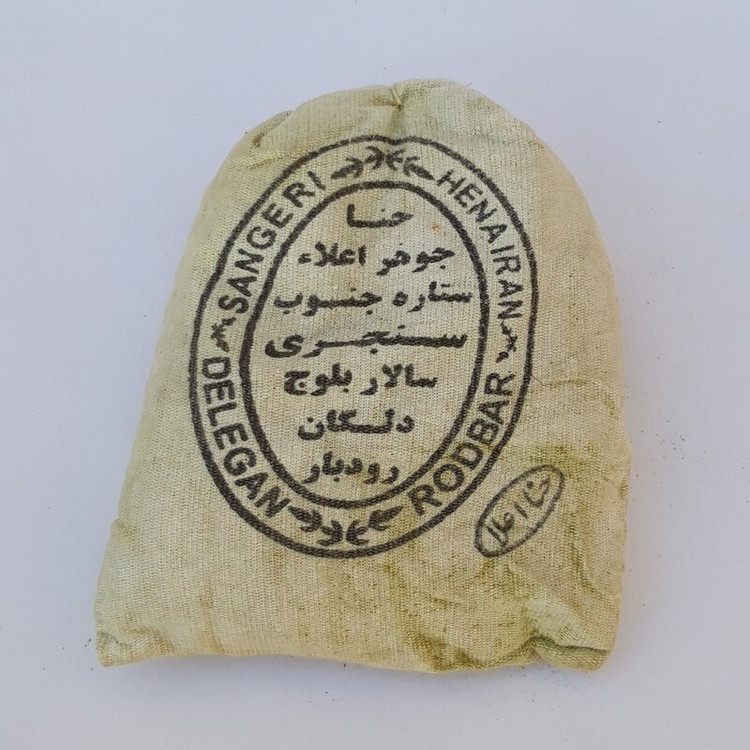 SANGERI
HENA IRAN
حنا
جوهر اعلاء
ستاره جنوب
سنجری
سالار بلوچ
دلگان
رودبار
DELEGAN
RODBAR
حنا اعلا